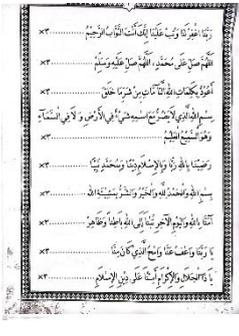 رَبَّنَا اغْفِرْ لَنَا وَتُبْ عَلَيْنَا إِنَّكَ أَنْتَ التَّوَّابُ الرَّحِيْمُ ...... ×٣
اَللّٰهُمَّ صَلِّ عَلَى مُحَمَّدٍ، اَللّٰهُمَّ صَلِّ عَلَيْهِ وَسَلِّمْ ...... ×٣
أَعُوْذُ بِكَلِمَاتِ اللهِ التَّامَّاتِ مِنْ شَرِّ مَا خَلَقَ ...... ×٣
بِسْمِ اللهِ الَّذِيْ لَا يَضُرُّ مَعَ اسْمِهِ شَيْءٌ فِي الْأَرْضِ وَلَا فِي السَّمَآءِ
وَهُوَ السَّمِيْعُ الْعَلِيْمُ ...... ×٣
رَضِيْنَا بِاللهِ رَبًّا وَبِالْإِسْلَامِ دِيْنًا وَبِمُحَمَّدٍ نَبِيًّا ...... ×٣
بِسْمِ اللهِ وَالْحَمْدُ لِلّٰهِ وَالْخَيْرُ وَالشَّرُّ بِمَشِيْئَةِ اللهِ ...... ×٣
آمَنَّا بِاللهِ وَالْيَوْمِ الْآخِرِ تُبْنَا إِلَى اللهِ بَاطِنًا وَظَاهِرًا ...... ×٣
يَا رَبَّنَا وَاعْفُ عَنَّا وَامْحُ الَّذِيْ كَانَ مِنَّا ...... ×٣
يَا ذَا الْجَلَالِ وَالْإِكْرَامِ أَمِتْنَا عَلَى دِيْنِ الْإِسْلَامِ ...... ×٣